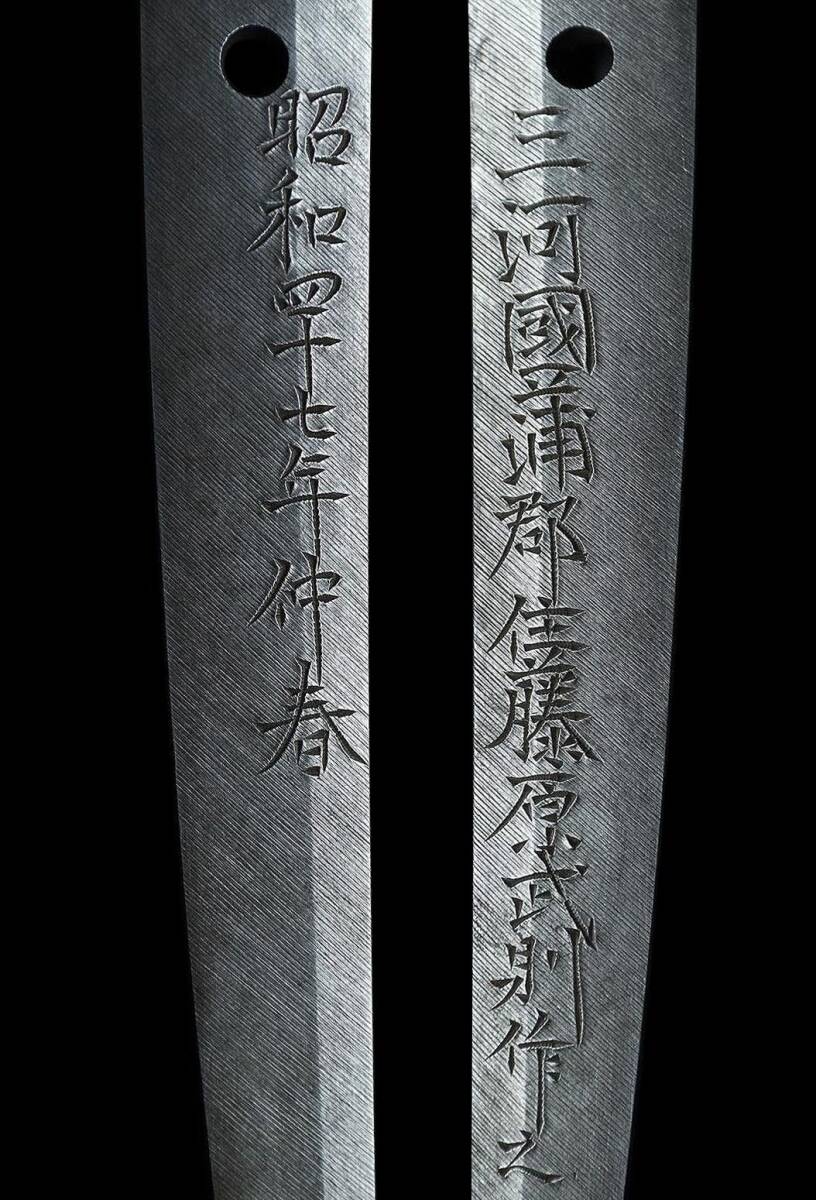 三河國蒲郡住藤原武則作之
昭和四十七年仲春